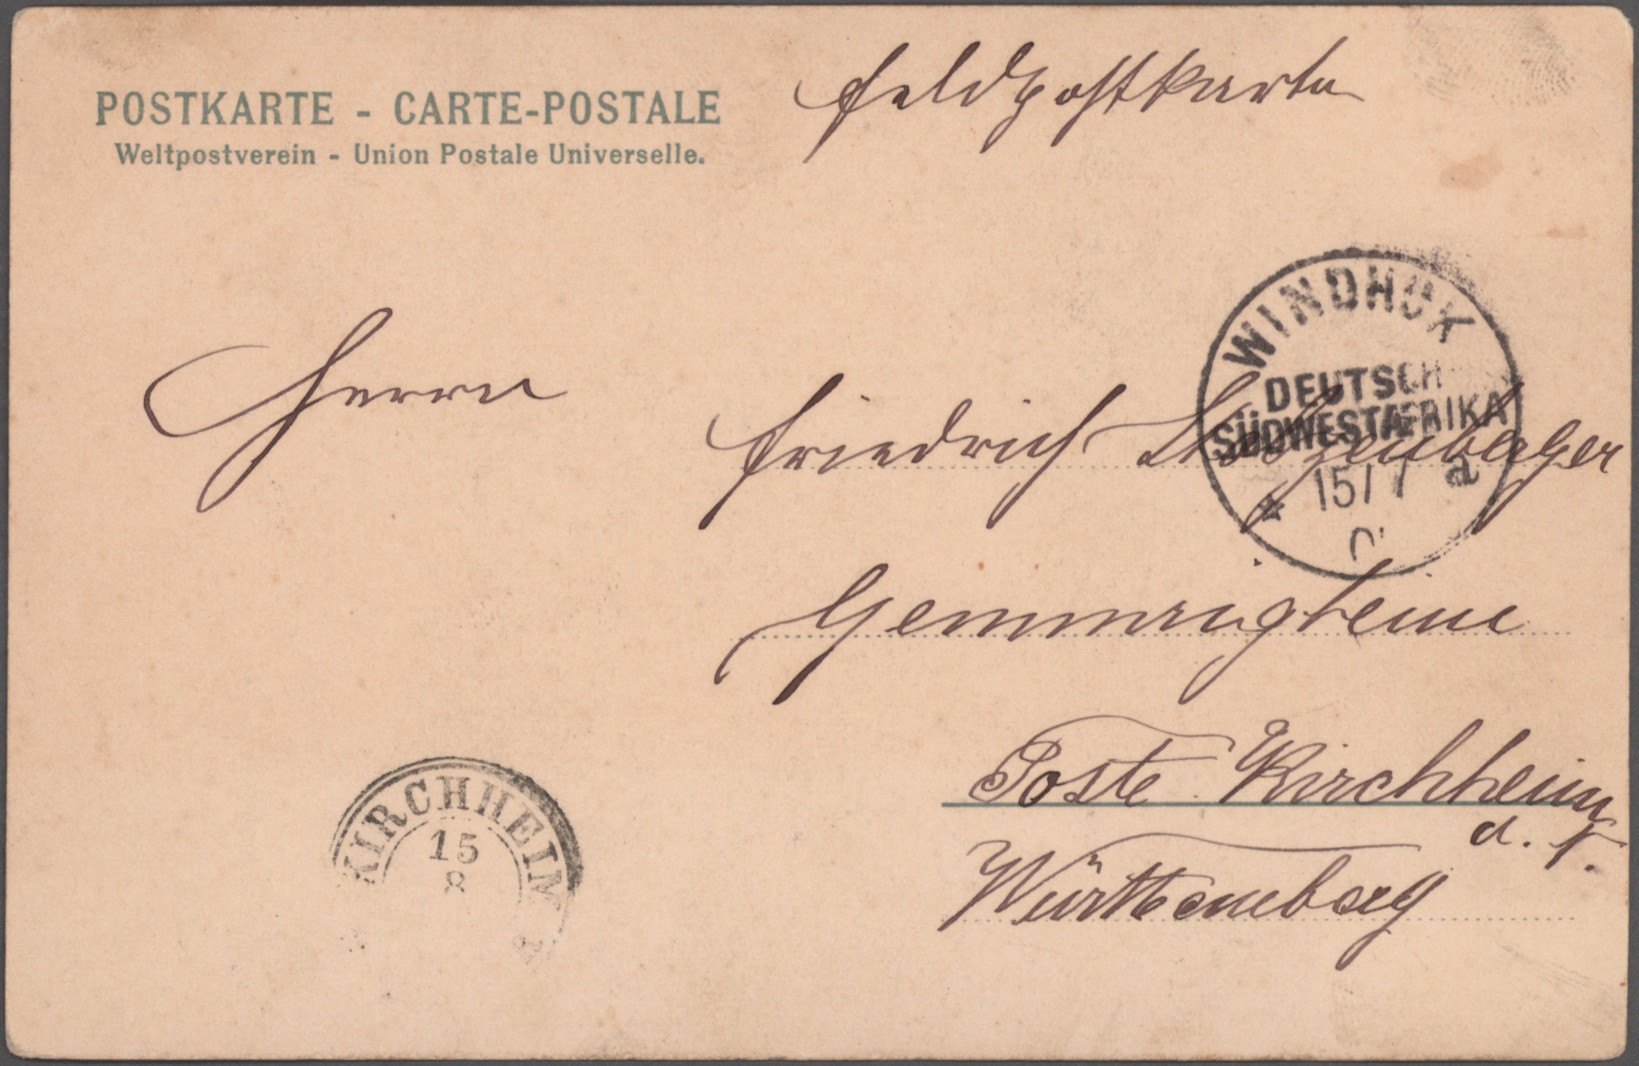 POSTKARTE - CARTE-POSTALE
Weltpostverein - Union Postale Universelle.
Feldpostkarte
WINDHUK
DEUTSCH
SÜDWESTAFRIKA
15/7 a
Herrn
Friedrich
Gemmrigheim
Poste Kirchheim
a. N.
Württemberg
KIRCHHEIM
15
8